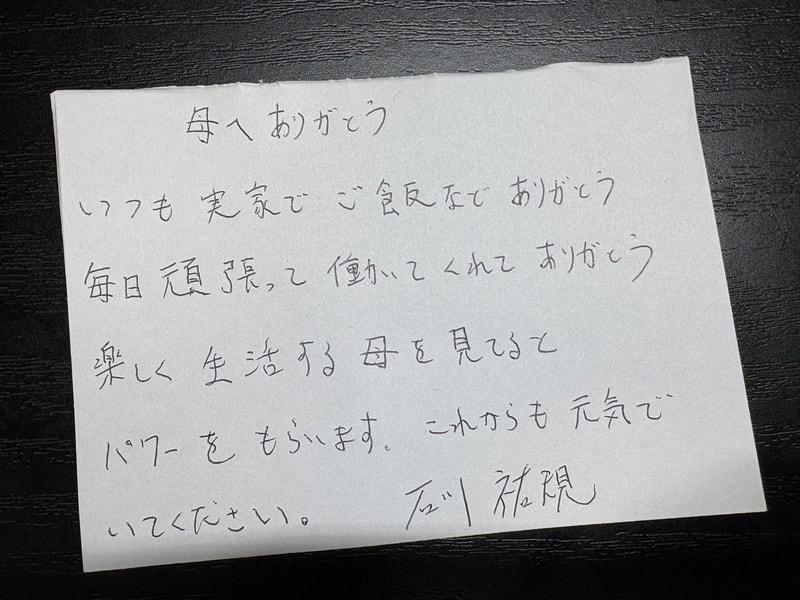 母へありがとう
いつも実家でご飯などありがとう
毎日頑張って働いてくれてありがとう
楽しく生活する母を見てると
パワーをもらいます。これからも元気で
いてください。 石川 祐規